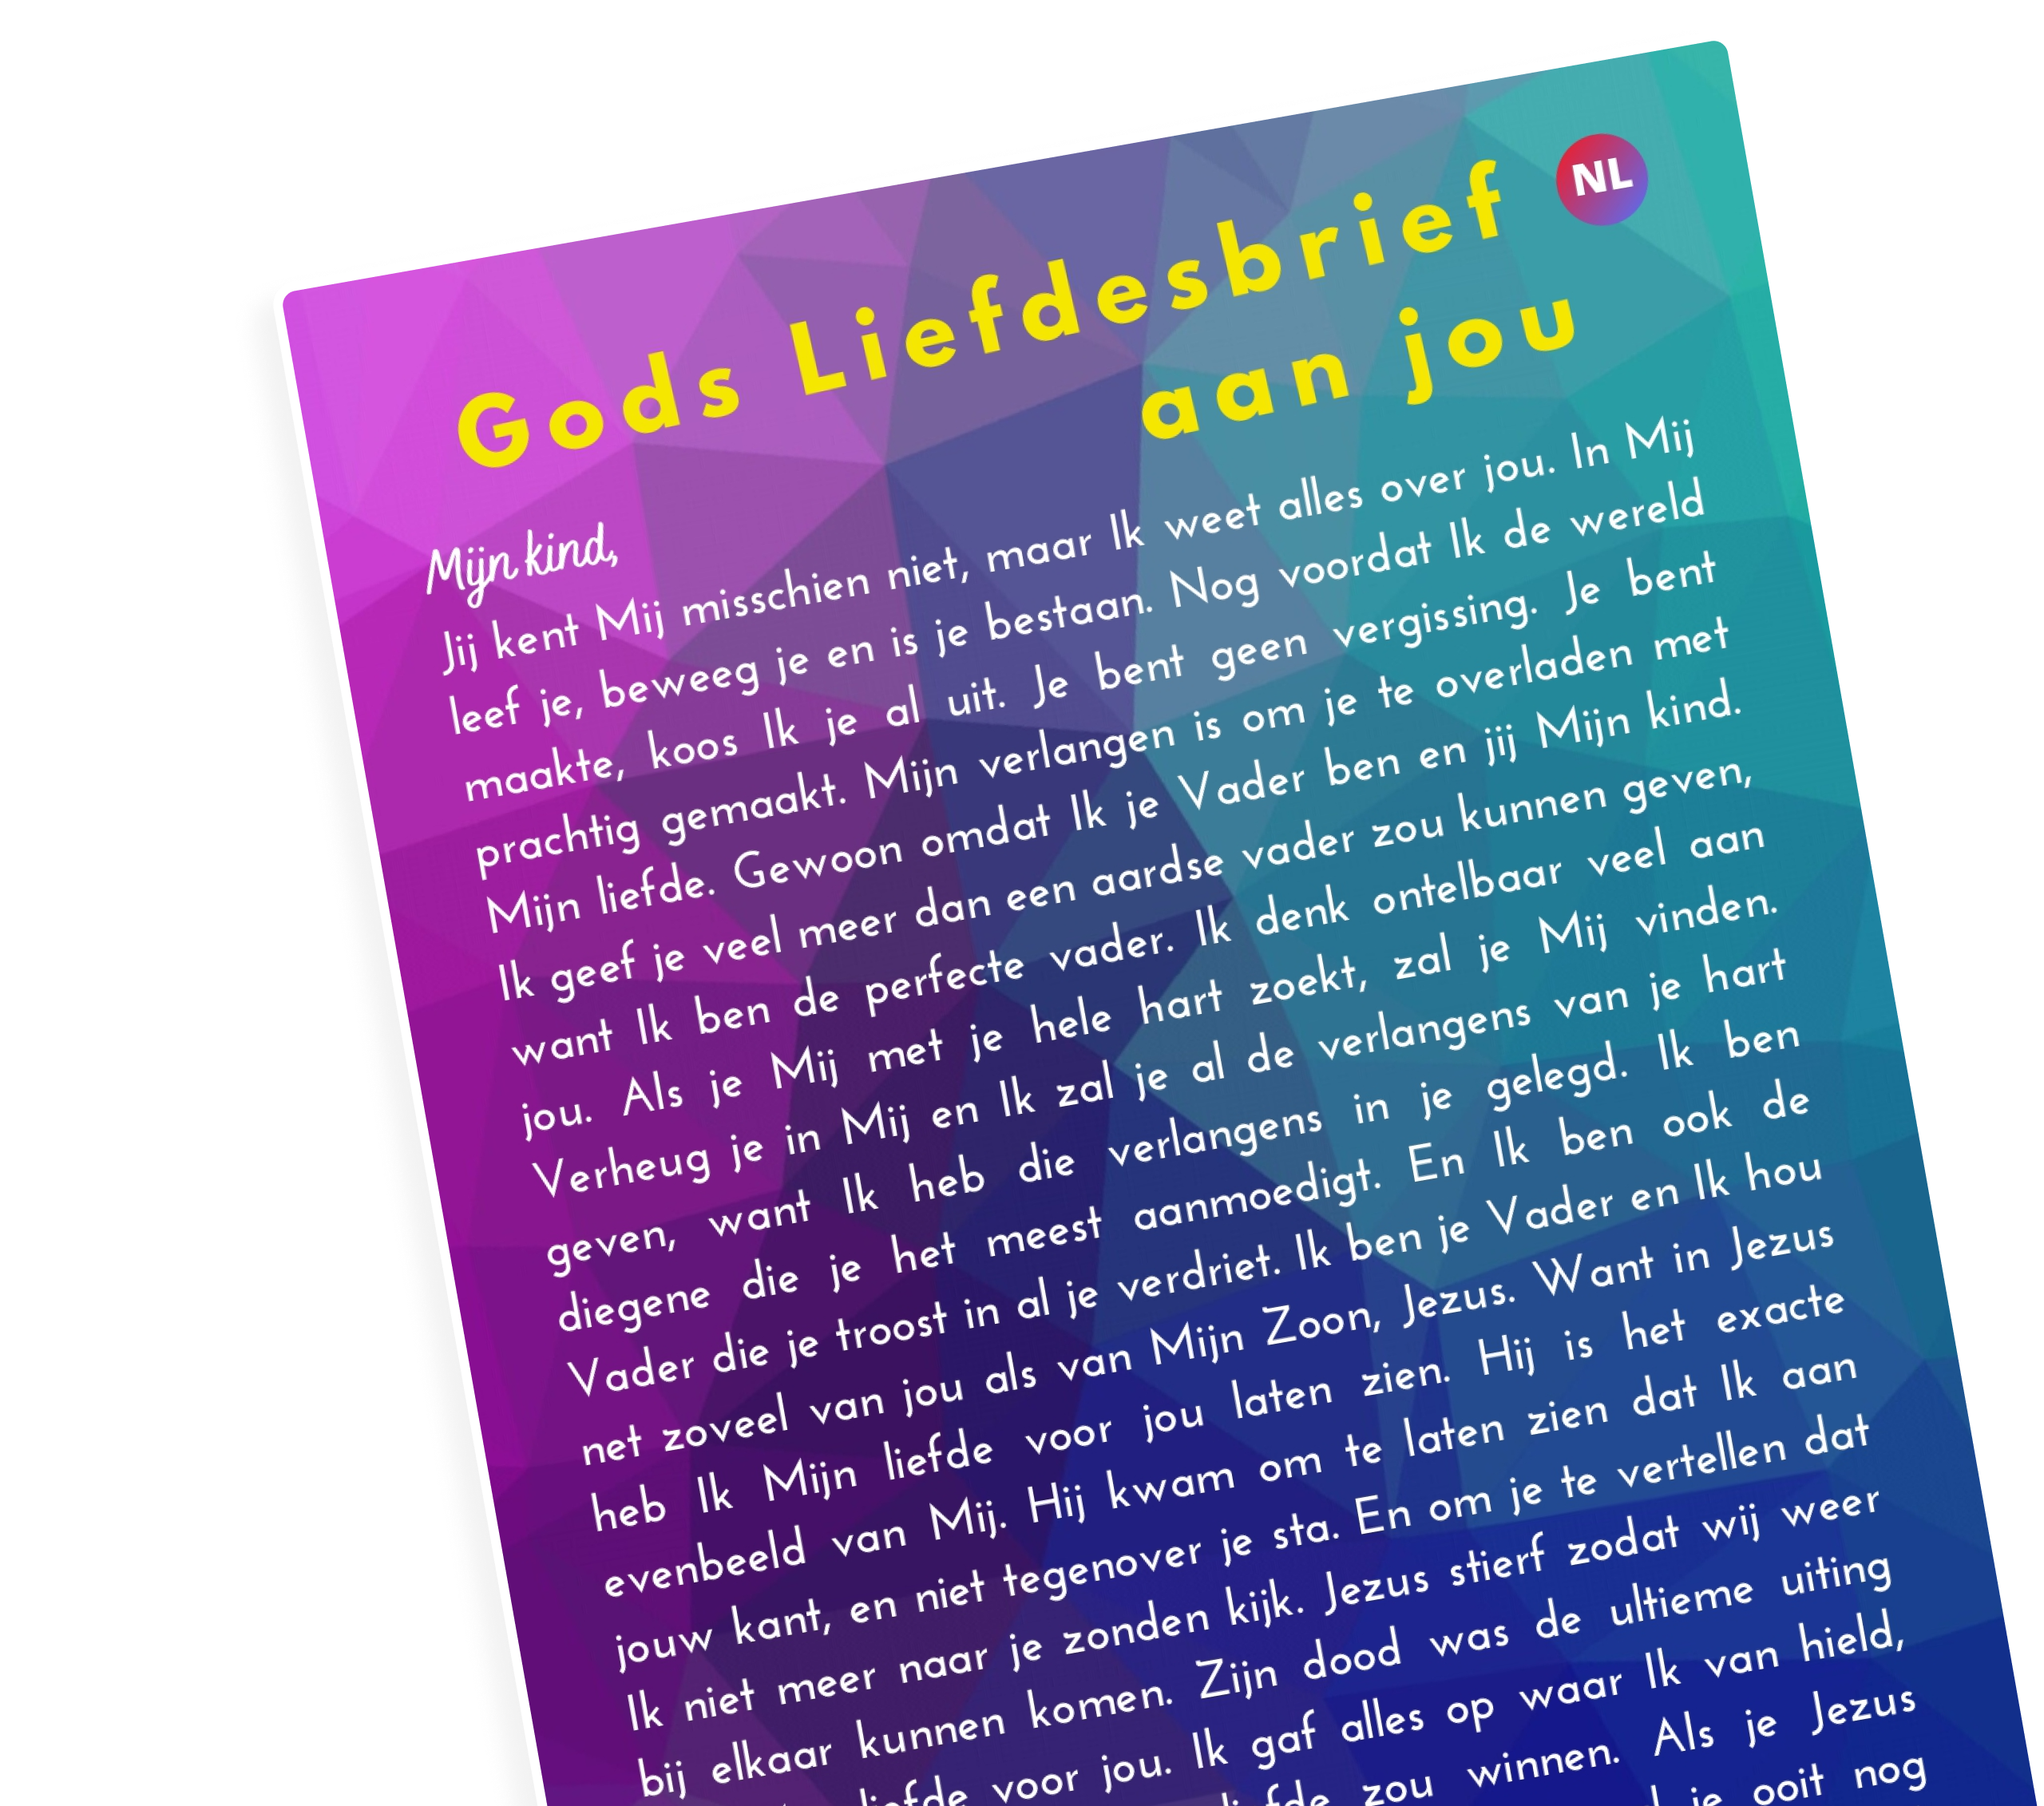 Gods Liefdesbrief
NL
aan jou
Mijn kind,
Jij kent Mij misschien niet, maar Ik weet alles over jou. In Mij
leef je, beweeg je en is je bestaan. Nog voordat Ik de wereld
maakte, koos Ik je al uit. Je bent geen vergissing. Je bent
prachtig gemaakt. Mijn verlangen is om je te overladen met
Mijn liefde. Gewoon omdat Ik je Vader ben en jij Mijn kind.
Ik geef je veel meer dan een aardse vader zou kunnen geven,
want Ik ben de perfecte vader. Ik denk ontelbaar veel aan
jou. Als je Mij met je hele hart zoekt, zal je Mij vinden.
Verheug je in Mij en Ik zal je al de verlangens van je hart
geven, want Ik heb die verlangens in je gelegd. Ik ben
diegene die je het meest aanmoedigt. En Ik ben ook de
Vader die je troost in al je verdriet. Ik ben je Vader en Ik hou
net zoveel van jou als van Mijn Zoon, Jezus. Want in Jezus
heb Ik Mijn liefde voor jou laten zien. Hij is het exacte
evenbeeld van Mij. Hij kwam om te laten zien dat Ik aan
jouw kant, en niet tegenover je sta. En om je te vertellen dat
Ik niet meer naar je zonden kijk. Jezus stierf zodat wij weer
bij elkaar kunnen komen. Zijn dood was de ultieme uiting
liefde voor jou. Ik gaf alles op waar Ik van hield,
liefde zou winnen. Als je Jezus
je ooit nog